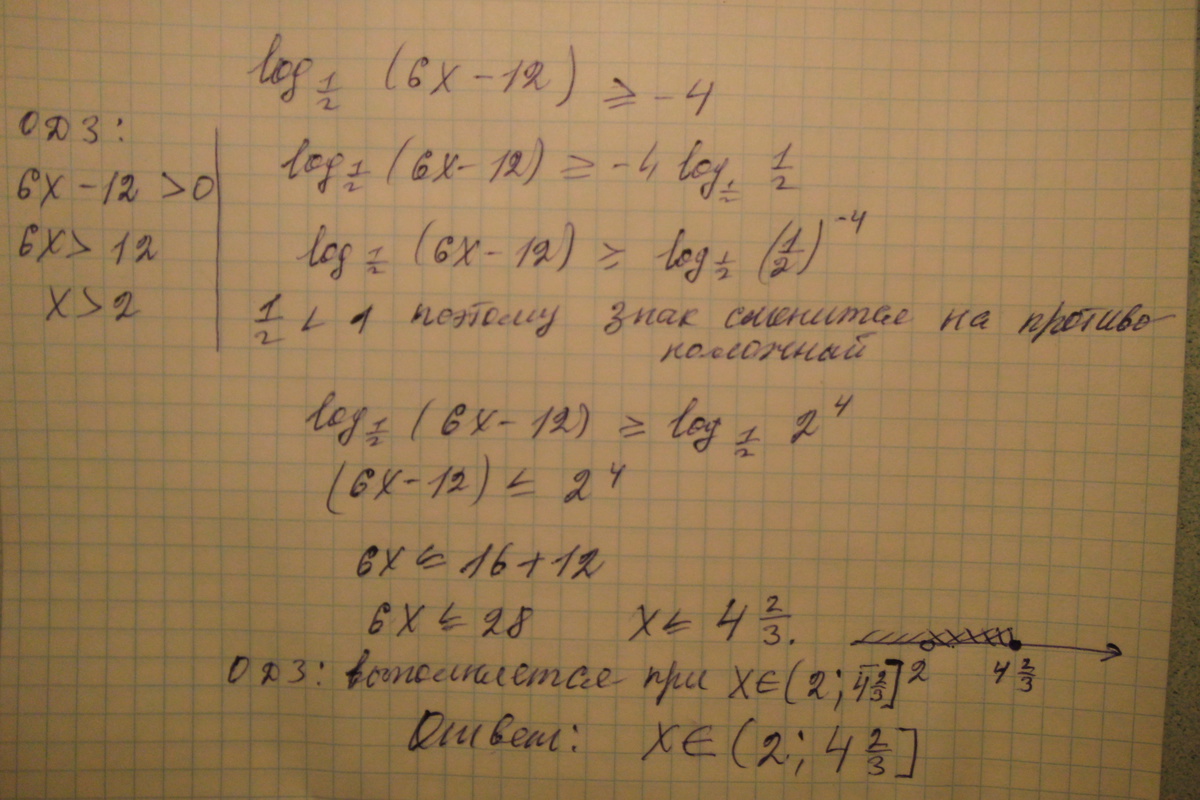 log_{1/2} (6x - 12) ≥ -4
ОДЗ:
6x - 12 > 0
6x > 12
x > 2
log_{1/2} (6x - 12) ≥ -4 log_{1/2} 1/2
log_{1/2} (6x - 12) ≥ log_{1/2} (1/2)^{-4}
1/2 < 1 поэтому знак сменится на противо-
положный
log_{1/2} (6x - 12) ≥ log_{1/2} 2^4
(6x - 12) ≤ 2^4
6x ≤ 16 + 12
6x ≤ 28 x ≤ 4 2/3.
2 4 2/3
ОДЗ: выполняется при x ∈ (2; 4 2/3]
Ответ: x ∈ (2; 4 2/3]